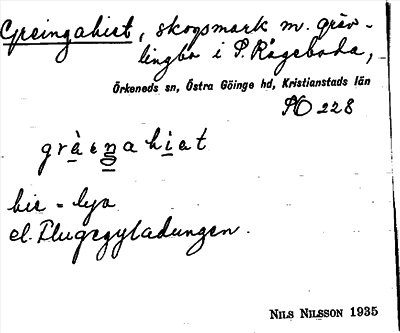 Greingahiet, skogsmark m. gräv-
lingbo i P. Rågeboda,
Örkeneds sn, Östra Göinge hd, Kristianstads län
PO 228
gràengahiet
hie = lya
el. Flugegyladungen.
NILS NILSSON 1935